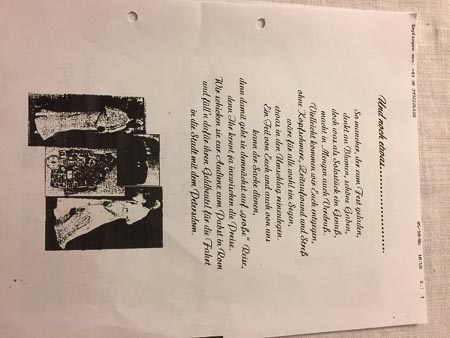 05/10/06 18:58 S.: 1
Und noch etwas..............
So mancher, der zum Fest geladen,
denkt an Blumen, schöne Gaben,
doch was als Solostück ein Genuß,
macht in Mengen auch Verdruß.
Vielleicht kommen wir Euch entgegen,
ohne Kopfschmerz, Zeitaufwand und Streß
wär's für alle wohl ein Segen,
etwas in den Umschlag einzulegen.
Ein Teil von Euch und auch von uns
kann der Sache dienen,
denn damit geht sie demnächst auf „große“ Reise,
denn Ihr kennt ja inzwischen die Preise.
Wir schicken sie zur Audienz zum Pabst in Rom
und füll'n dafür ihren Geldbeutel für die Fahrt
in die Stadt mit dem Petersdom.